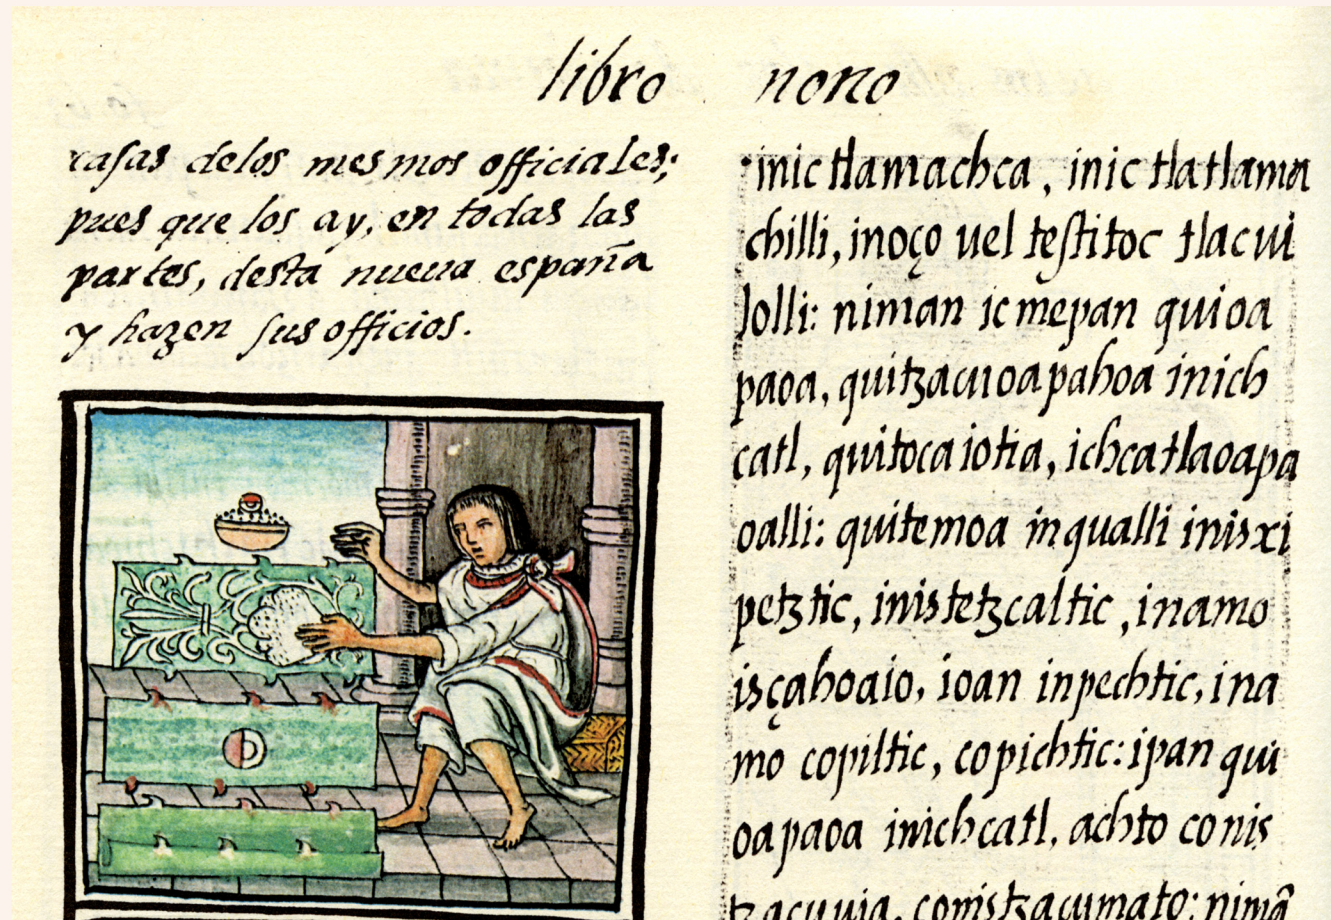 libro nono
casas delos mesmos officiales;
pues que los ay, en todas las
partes, desta nueua españa
y hazen sus officios.
inic tlamachca, inic tlatlama
chilli, inoço uel testitoc tlacui
lolli: niman ic mepan quioa
paoa, quitzacuioapahoa inich
catl, quitocaiotia, ichcatlaoapa
oalli: quitemoa in qualli inisxi
petztic, inistetzcaltic, inamo
isçahoaio, ioan inpechtic, ina
mo copiltic, copichtic: ipan qui
oapaoa inichcatl, achto conis
tzacuuia, conistzacumato: nimã